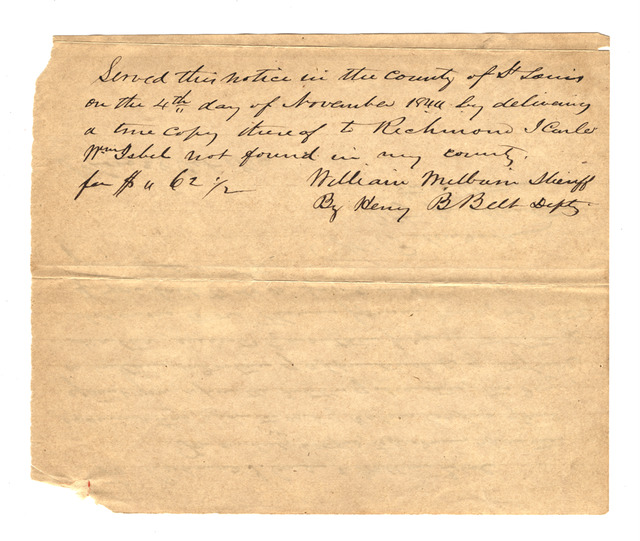 Served this notice in the county of St Louis
on the 4th day of November 1844 by delivering
a true copy thereof to Richmond J Curle
Wm Isbel not found in my county.
fee $ " 62 1/2 William Milburn Sheriff
By Henry B Belt Depty